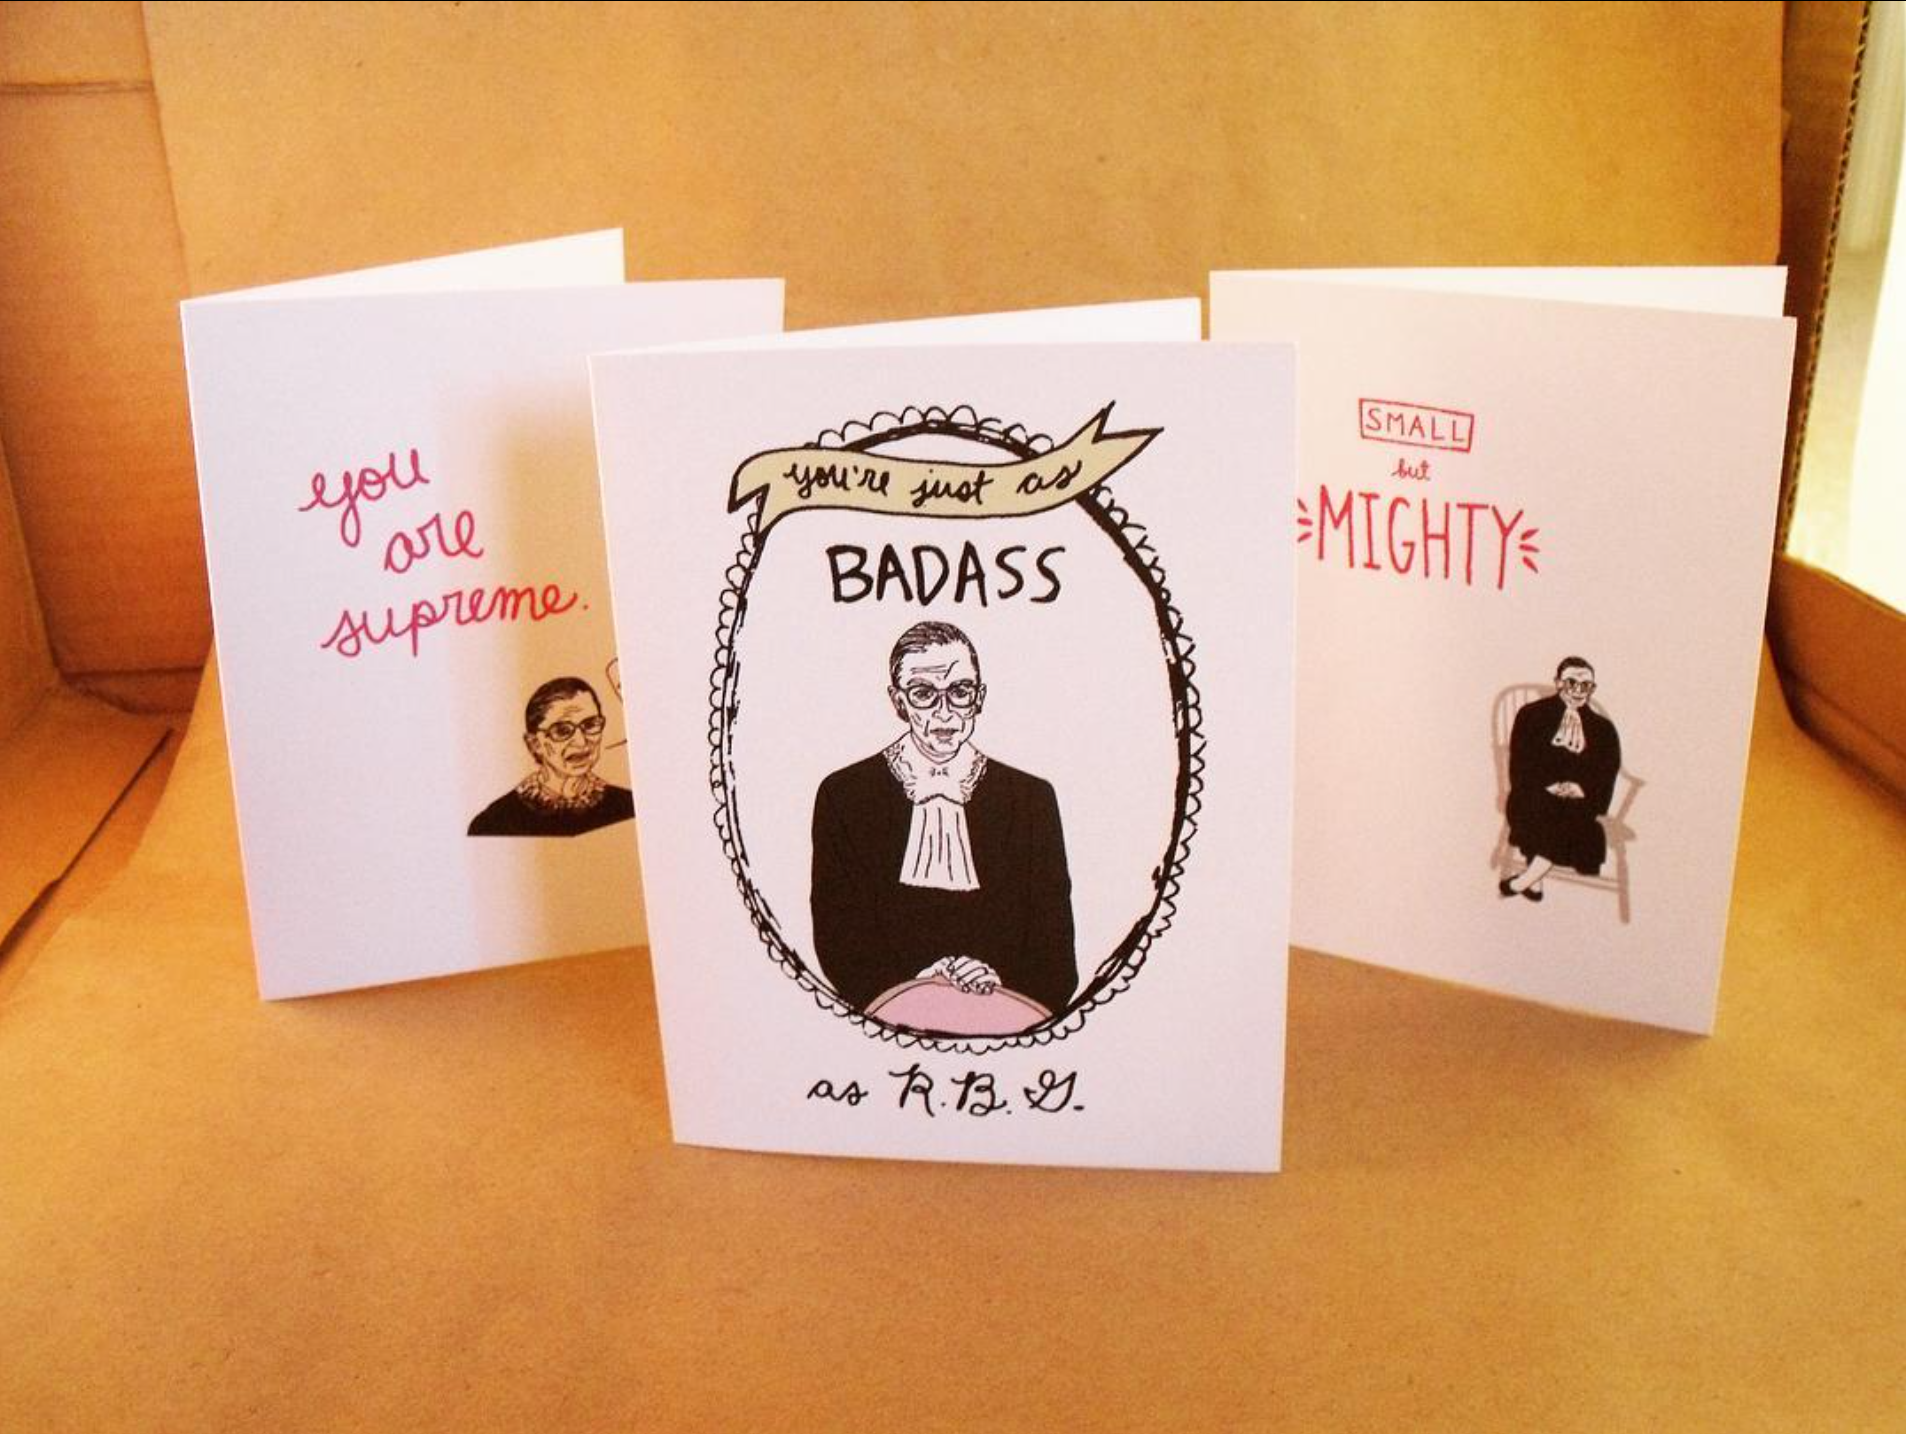 you
are
supreme.
you're just as
BADASS
as R.B.G.
SMALL
but
MIGHTY